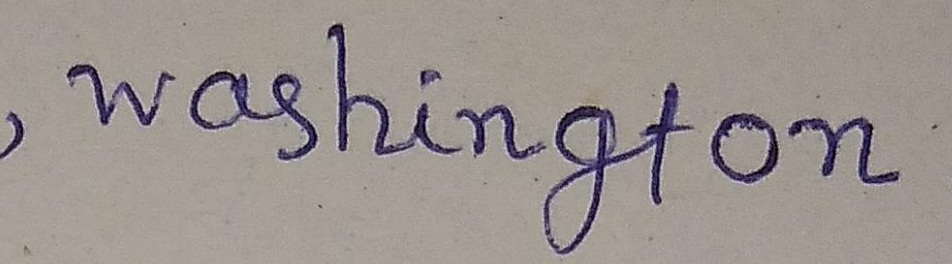 , washington